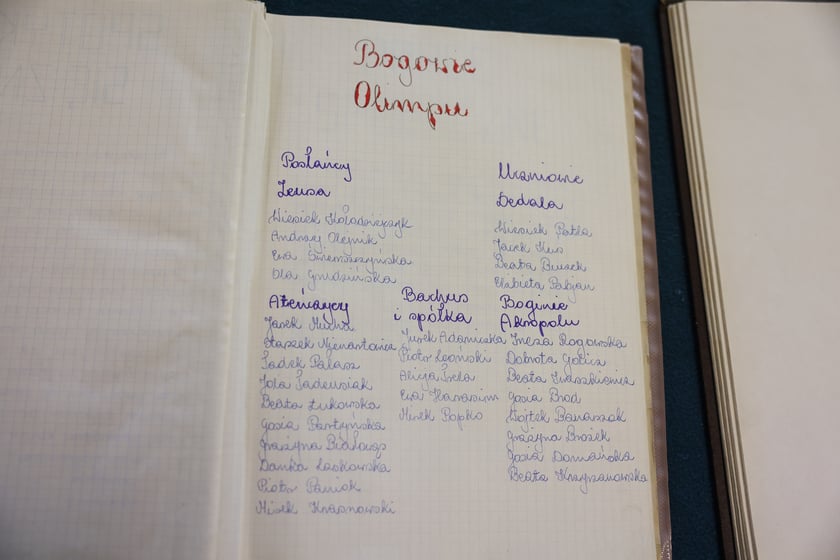 Bogowie
Olimpu
Posłańcy
Zeusa
Wiesiek Kołodziejczyk
Andrzej Olejnik
Ewa
Ola Gnidzińska
Uczniowie
Dedala
Wiesiek Patla
Jacek Kus
Beata Buszek
Elżbieta Babjan
Ateńczycy
Jacek Mucha
Staszek Nienartowicz
Tadek Pałasz
Jola Tadeusiak
Beata Łukowska
Gosia
Grażyna
Danka Laskowska
Piotr Paniak
Mirek Krasnowski
Bachus
i spółka
Jurek Adamiczka
Piotr Leoński
Alicja
Ewa Harasim
Mirek Popko
Boginie
Akropolu
Ineza Rogowska
Dobrota
Beata Iwaszkiewicz
Gosia Brod
Wojtek Banaszak
Grażyna Brożek
Gosia Domańska
Beata Krzyżanowska